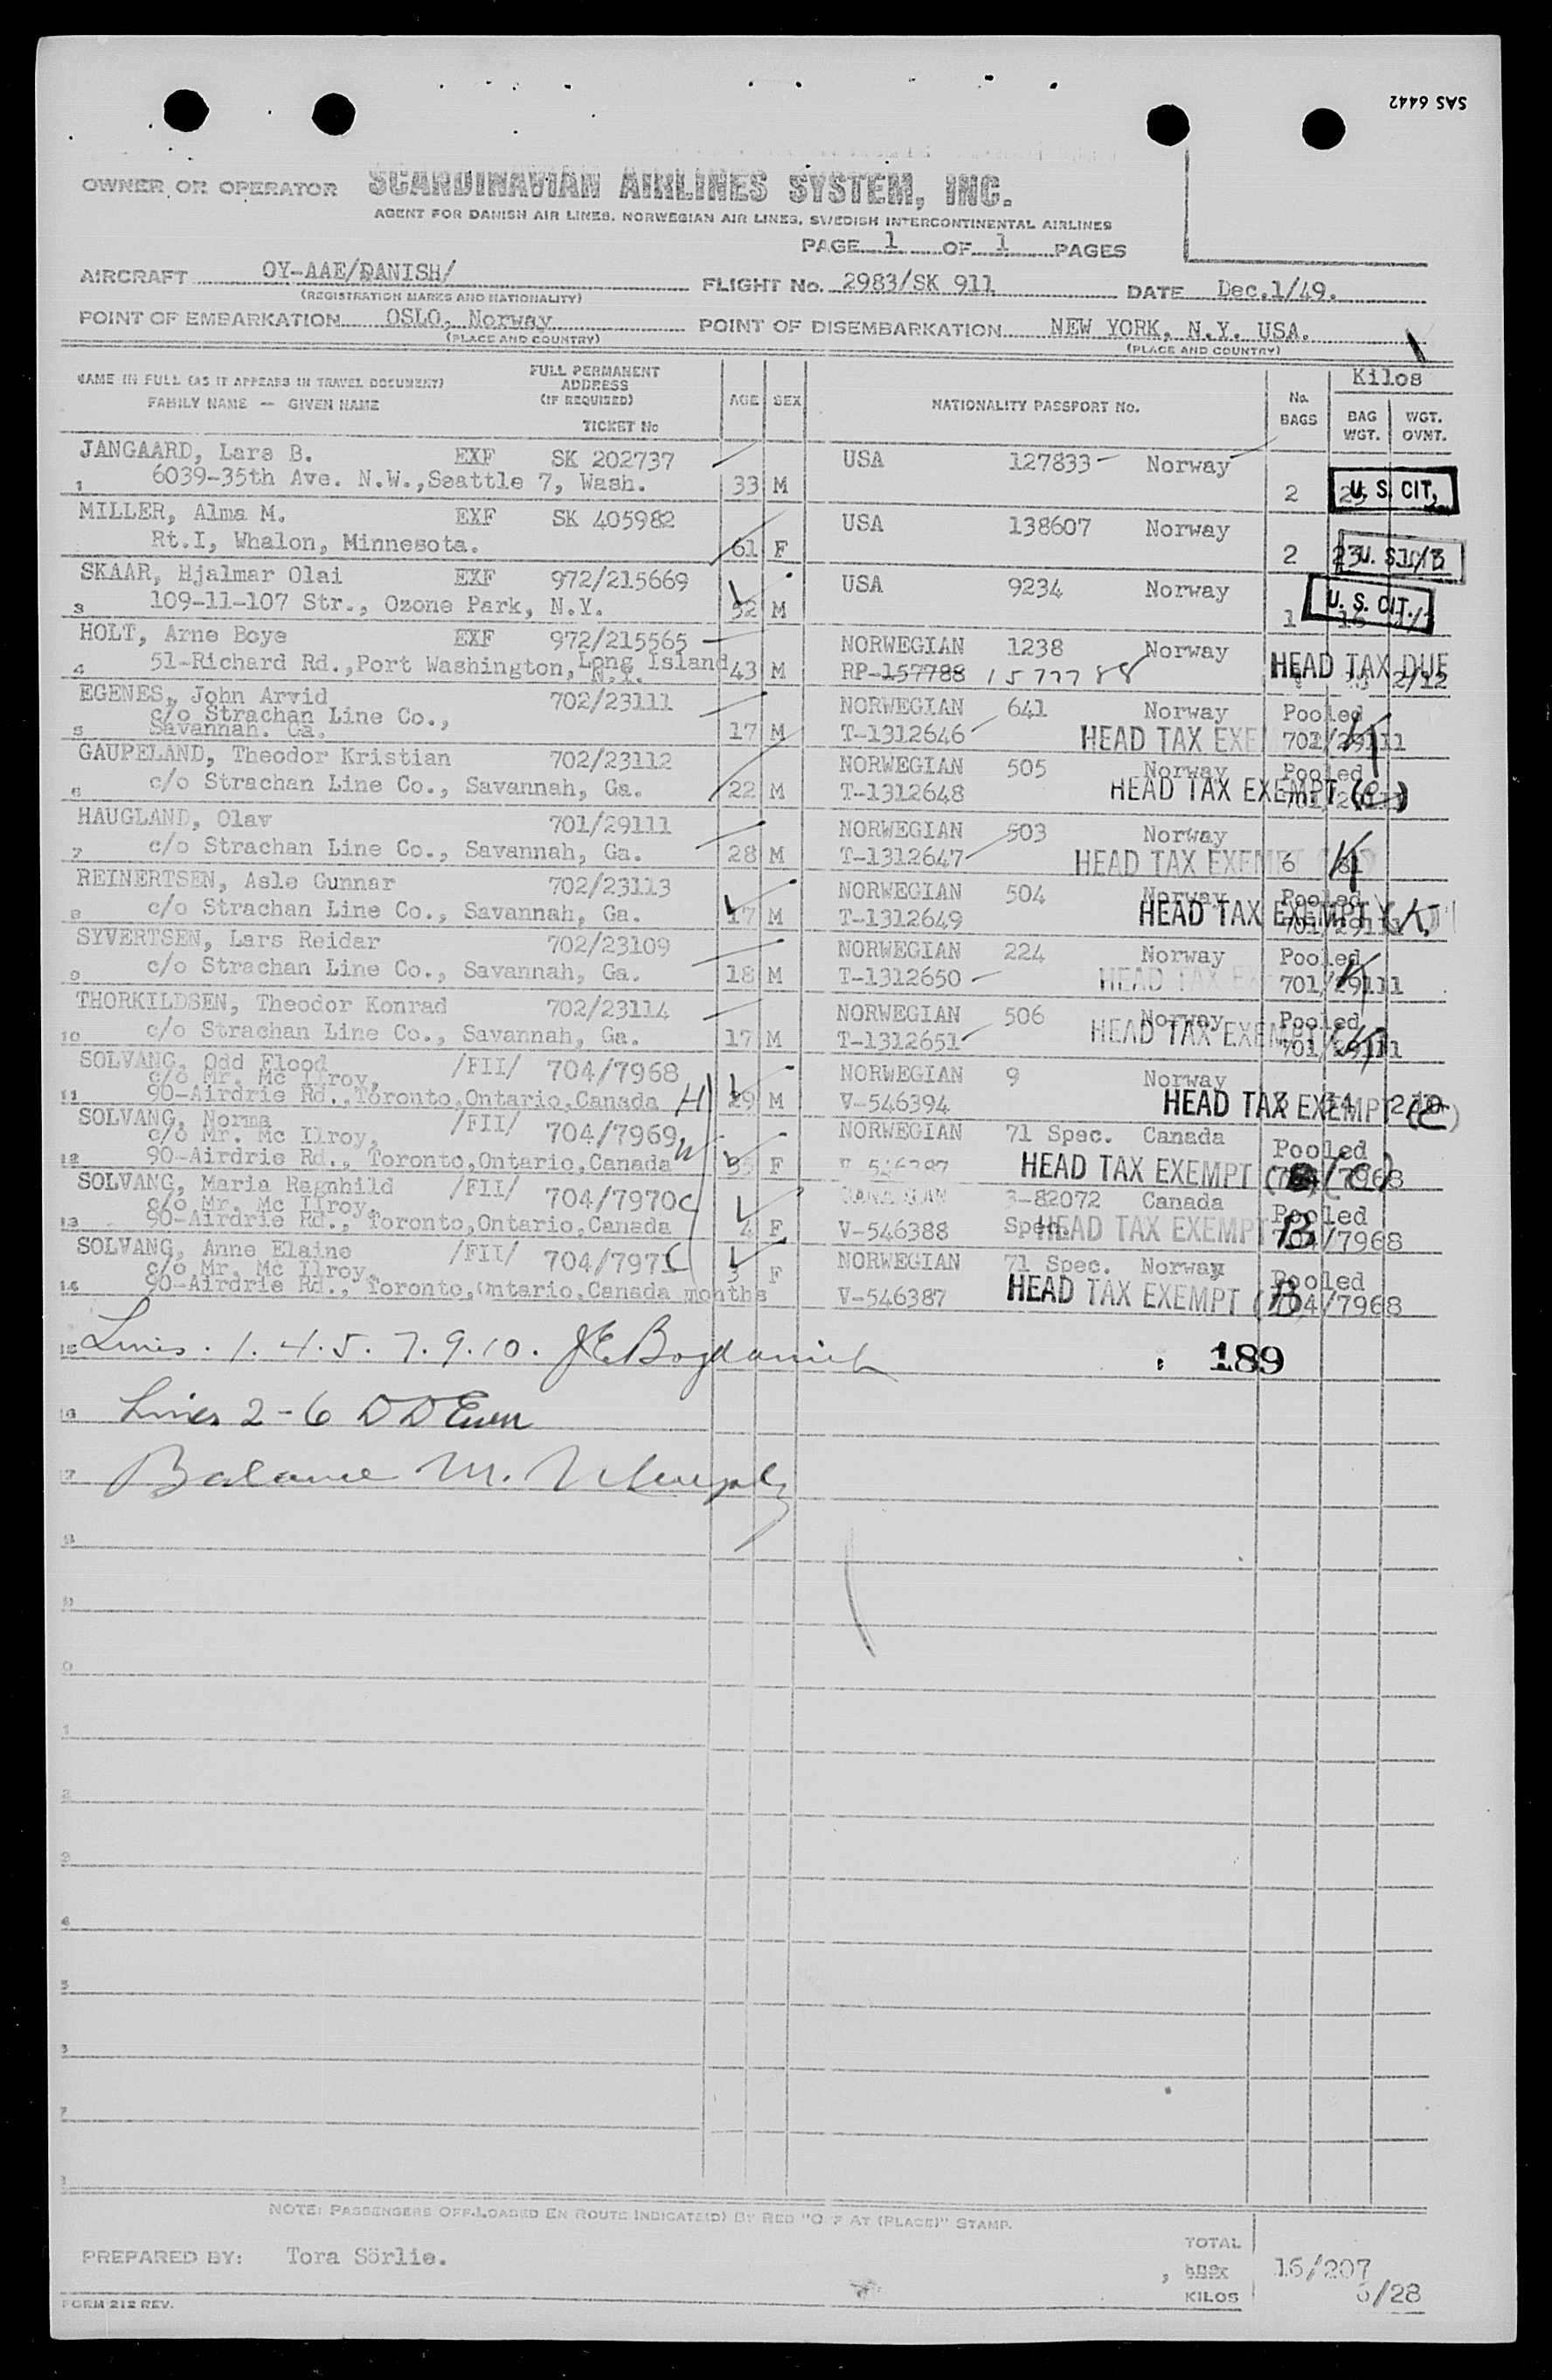 SAS 6442
OWNER OR OPERATOR SCANDINAVIAN AIRLINES SYSTEM, INC.
AGENT FOR DANISH AIR LINES, NORWEGIAN AIR LINES, SWEDISH INTERCONTINENTAL AIRLINES
PAGE 1 OF 1 PAGES
AIRCRAFT OY-AAE/DANISH/ FLIGHT No. 2983/SK 911 DATE Dec.1/49.
(REGISTRATION MARKS AND NATIONALITY)
POINT OF EMBARKATION OSLO, Norway POINT OF DISEMBARKATION NEW YORK, N.Y. USA.
(PLACE AND COUNTRY) (PLACE AND COUNTRY)
NAME IN FULL (AS IT APPEARS IN TRAVEL DOCUMENT)
FAMILY NAME — GIVEN NAME
FULL PERMANENT
ADDRESS
(IF REQUIRED)
TICKET No
AGE SEX NATIONALITY PASSPORT No.
No.
BAGS
Kilos
BAG WGT.
WGT. OVNT.
JANGAARD, Lars B. EXF SK 202737 USA 127833 Norway
1 6039-35th Ave. N.W.,Seattle 7, Wash. 33 M 2 U. S. CIT,
MILLER, Alma M. EXF SK 405982 USA 138607 Norway
Rt.I, Whalon, Minnesota. 61 F 2 23
SKAAR, Hjalmar Olai EXF 972/215669 USA 9234 Norway
3 109-11-107 Str., Ozone Park, N.Y. 52 M 1 U. S. CIT.
HOLT, Arne Boye EXF 972/215565 NORWEGIAN 1238 Norway
4 51-Richard Rd.,Port Washington, Long Island N.Y. 43 M RP-157788 1577788 HEAD TAX DUE 2/12
EGENES, John Arvid 702/23111 NORWEGIAN 641 Norway Pooled
c/o Strachan Line Co.,
5 Savannah. Ga. 17 M T-1312646 HEAD TAX EXE 701/29111
GAUPELAND, Theodor Kristian 702/23112 NORWEGIAN 505 Norway Pooled
6 c/o Strachan Line Co., Savannah, Ga. 22 M T-1312648 HEAD TAX EXEMPT (C) 701/29111
HAUGLAND, Olav 701/29111 NORWEGIAN 503 Norway
7 c/o Strachan Line Co., Savannah, Ga. 28 M T-1312647 HEAD TAX EXEM 6 81
REINERTSEN, Asle Gunnar 702/23113 NORWEGIAN 504 Norway Pooled
8 c/o Strachan Line Co., Savannah, Ga. 17 M T-1312649 HEAD TAX EXEMPT (K) 701/29111
SYVERTSEN, Lars Reidar 702/23109 NORWEGIAN 224 Norway Pooled
9 c/o Strachan Line Co., Savannah, Ga. 18 M T-1312650 HEAD TAX EX 701/29111
THORKILDSEN, Theodor Konrad 702/23114 NORWEGIAN 506 Norway Pooled
10 c/o Strachan Line Co., Savannah, Ga. 17 M T-1312651 HEAD TAX EXEM 701/29111
SOLVANG, Odd Flood /FII/ 704/7968 NORWEGIAN 9 Norway
c/o Mr. Mc Ilroy,
11 90-Airdrie Rd.,Toronto,Ontario,Canada H 29 M V-546394 HEAD TAX EXEMPT (C)
SOLVANG, Norma /FII/ 704/7969 W NORWEGIAN 71 Spec. Canada Pooled
c/o Mr. Mc Ilroy,
12 90-Airdrie Rd., Toronto,Ontario,Canada 35 F HEAD TAX EXEMPT (C) 704/7968
SOLVANG, Maria Ragnhild /FII/ 704/7970 C 3-82072 Canada Pooled
c/o Mr. Mc Ilroy,
13 90-Airdrie Rd., Toronto,Ontario,Canada 4 F V-546388 Spec. HEAD TAX EXEMPT B 704/7968
SOLVANG, Anne Elaine /FII/ 704/7971 C NORWEGIAN 71 Spec. Norway Pooled
c/o Mr. Mc Ilroy,
14 90-Airdrie Rd., Toronto,Ontario,Canada 3 months F V-546387 HEAD TAX EXEMPT (B) 704/7968
15 Lines . 1. 4. 5. 7. 9. 10. 189
16 Lines 2-6
17 Balance M.
NOTE: PASSENGERS OFF-LOADED EN ROUTE INDICATE(D) BY RED "OFF AT (PLACE)" STAMP.
PREPARED BY: Tora Sörlie.
TOTAL 16/207
KILOS 6/28
FORM 212 REV.